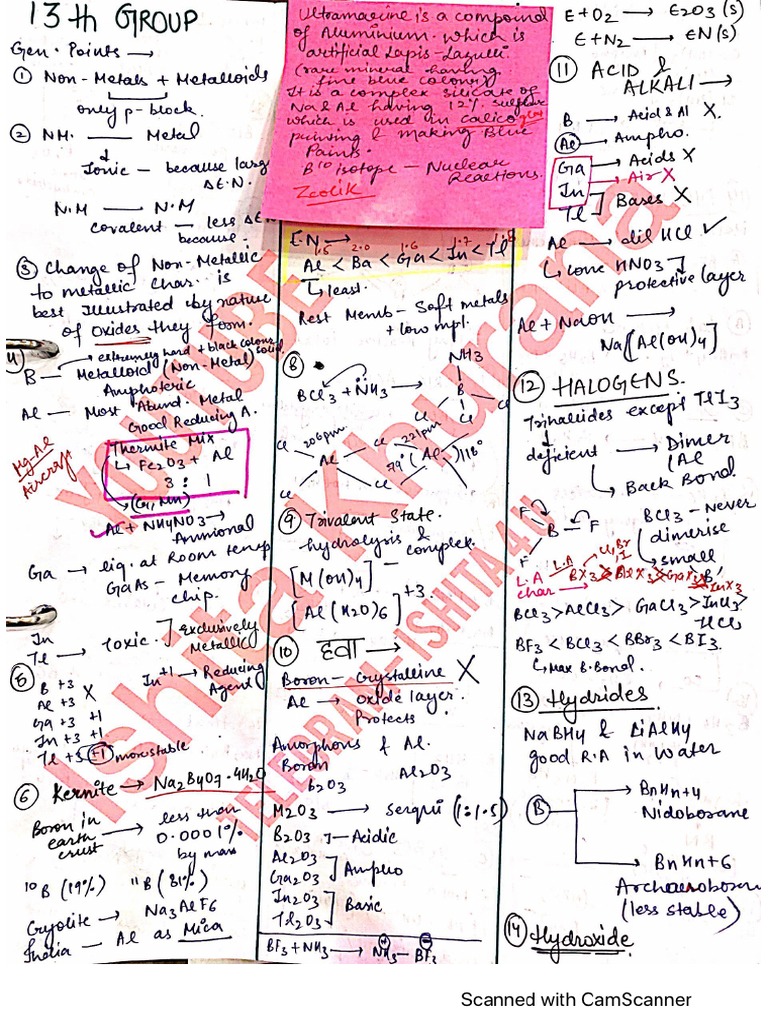 13th GROUP
Gen. Points →
① Non-Metals + Metalloids
only p-block.
② NM. — Metal
Ionic — because large
Δ E.N.
N.M — N.M
covalent — less ΔE.N
because.
③ Change of Non-Metallic
to metallic char. is
best Illustrated by nature
of Oxides they form.
4
extremely hard + black colour
solid
B — Metalloid (Non-Metal)
Amphoteric
Al — Most Abund. Metal
Good Reducing A.
Mg-Al
Aircraft
Thermite Mix
↳ Fe2O3 + Al
3 : 1
Al + NH4NO3 →
Ammonal
Ga → liq. at Room temp
GaAs — Memory
chip.
In
Tl → toxic
Exclusively
Metallic
⑤
B +3
Al +3 X
Ga +3 +1
In +3 +1
Tl +3 +1 more stable
In+1 → Reducing
Agent
⑥ Kernite → Na2B4O7.4H2O
Boron in
earth
crust → less than
0.0001%
by mass
10B (19%) 11B (81%)
Cryolite → Na3AlF6
India — Al as Mica
Ultramarine is a compound
of Aluminium which is
artificial Lapis-Lazulli.
(rare mineral having
fine blue colour)
It is a complex silicate of
Na & Al having 12% sulphur
which is used in calico
printing & making Blue
Paints.
B10 isotope — Nuclear
Reactions.
E.N →
1.5 2.0 1.6 1.7 1.8
Al < Ba < Ga < In < Tl
↳ least.
Rest Memb — Soft metals
+ low mpt.
⑧
NH3
BCl3 + N̈H3 → B
Cl Cl Cl
206pm 221pm
Cl Cl Cl
Al Al
79° 118°
Cl Cl Cl
⑨ Trivalent State.
hydrolysis & complex.
[M(OH)4]−
[Al(H2O)6]+3
⑩ हवा →
Boron — Crystalline X
Al → oxide layer
Protects
Amorphous & Al.
Boron
b2O3 Al2O3
M2O3 → sesqui (1:1.5)
B2O3 — Acidic
Al2O3
Ga2O3 Ampho
In2O3
Tl2O3 Basic
BF3 + NH3 → NH3 — BF3
+ −
E + O2 → E2O3(s)
E + N2 → EN(s)
⑪ ACID &
ALKALI →
B → Acid & Al X.
Al → Ampho.
Ga → Acids X
In → Air X
Tl Bases X
Al → dil HCl ✓
↳ conc HNO3
protective layer
Al + NaOH →
Na[Al(OH)4]
⑫ HALOGENS.
Trihalides except TlI3
deficient → Dimer
(Al
→ Back Bond.
F
B = F
F
BCl3 — Never
dimerise
small
L.A
char
BCl3 > AlCl3 > GaCl3 > InCl3 >
TlCl3
BF3 < BCl3 < BBr3 < BI3.
↳ Max B.Bond.
⑬ Hydrides
NaBH4 & LiAlH4
good R.A in water
B → BnHn+4
Nidoborane
→ BnHn+6
Archaenoborane
(less stable)
⑭ Hydroxide
YOUTUBE
Ishita Khurana
TELEGRAM-ISHITA 4U
Scanned with CamScanner